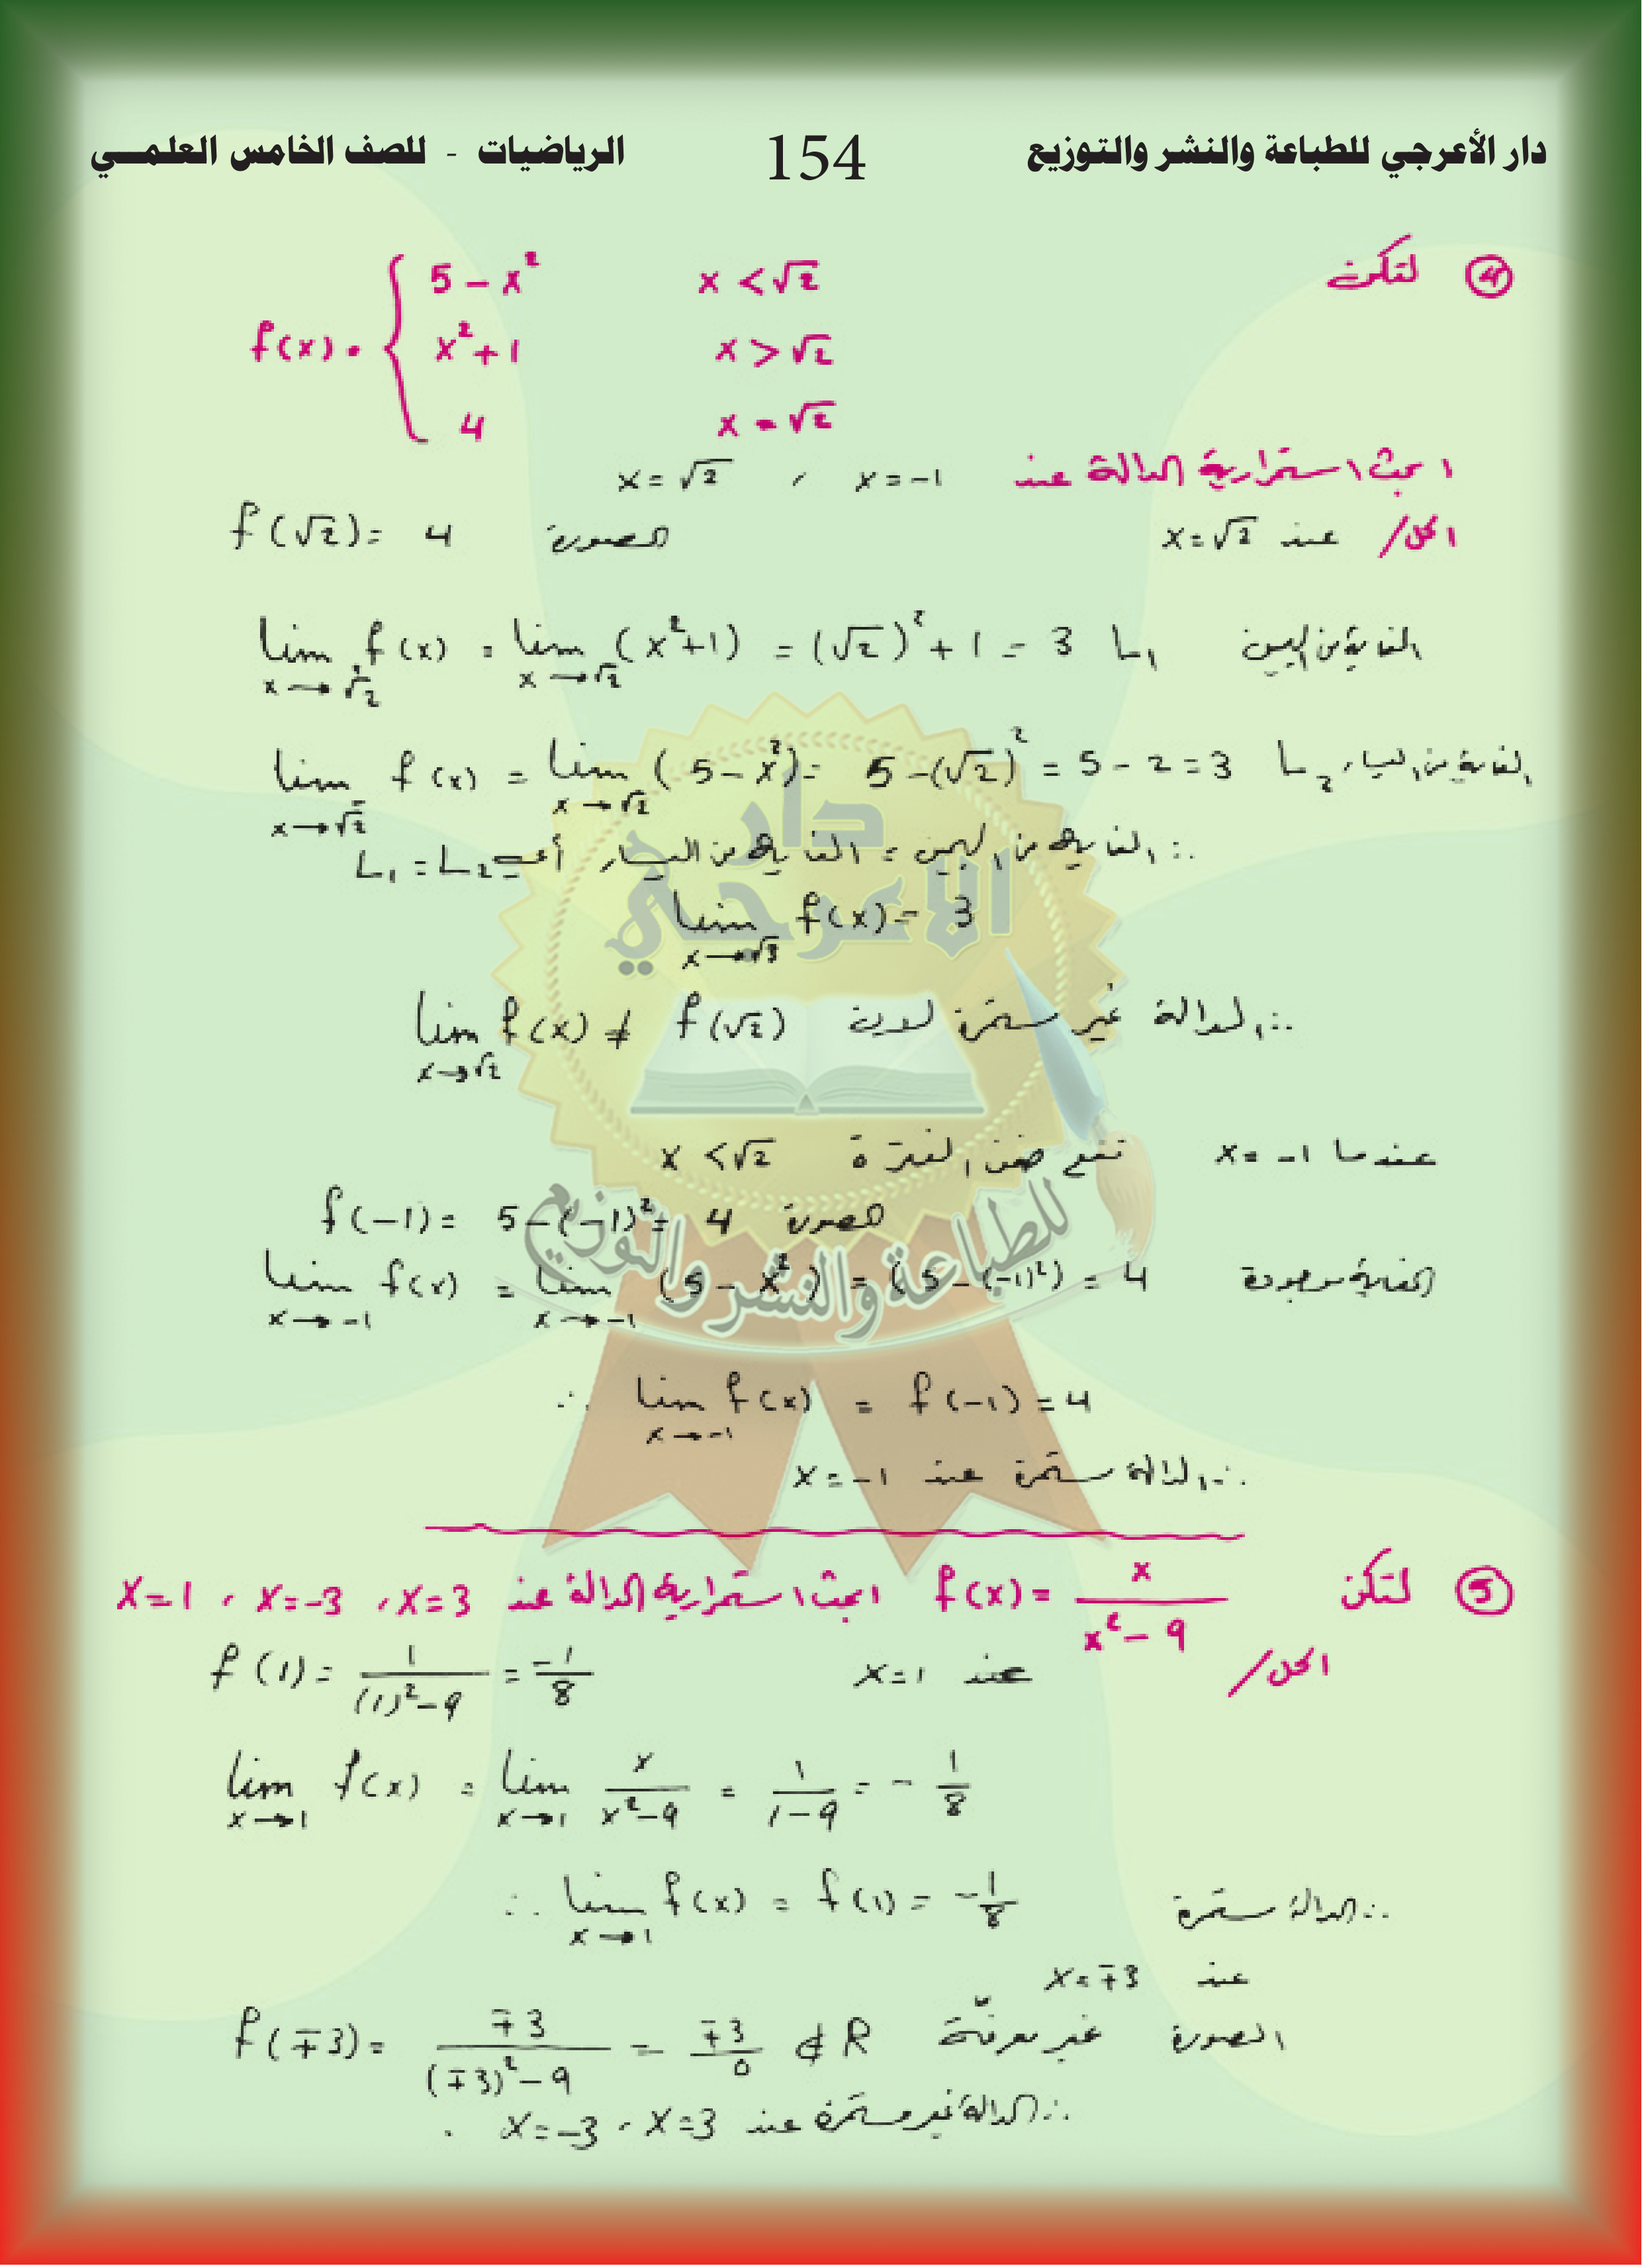 دار الأعرجي للطباعة والنشر والتوزيع 154 الرياضيات - للصف الخامس العلمـــي
④ لتكن f(x) = { 5 - x² x < √2
x² + 1 x > √2
4 x = √2
ابحث استمرارية الدالة عند x = -1 ، x = √2
الحل/ عند x = √2 الصورة f(√2) = 4
الغاية من اليمين lim x→√2⁺ f(x) = lim x→√2 (x²+1) = (√2)² + 1 = 3 L₁
الغاية من اليسار lim x→√2⁻ f(x) = lim x→√2 (5 - x²) = 5 - (√2)² = 5 - 2 = 3 L₂
∴ الغاية من اليمين = الغاية من اليسار أي L₁ = L₂
lim x→√3 f(x) = 3
∴ الدالة غير مستمرة لان lim x→√2 f(x) ≠ f(√2)
عندما x = -1 تقع ضمن الفترة x < √2
f(-1) = 5 - (-1)² = 4 الصورة
الغاية موجودة lim x→-1 f(x) = lim x→-1 (5 - x²) = (5 - (-1)²) = 4
∴ lim x→-1 f(x) = f(-1) = 4
∴ الدالة مستمرة عند x = -1
⑤ لتكن f(x) = x / (x² - 9) ابحث استمرارية الدالة عند x = 3 ، x = -3 ، x = 1
الحل/ عند x = 1 f(1) = 1 / ((1)² - 9) = -1/8
lim x→1 f(x) = lim x→1 x / (x² - 9) = 1 / (1 - 9) = - 1/8
∴ الدالة مستمرة ∴ lim x→1 f(x) = f(1) = -1/8
عند x = ∓3
الصورة غير معرفة f(∓3) = ∓3 / ((∓3)² - 9) = ∓3/0 ∉ R
∴ الدالة غير مستمرة عند x = 3 ، x = -3 .
دار
الاعرجي
للطباعة والنشر والتوزيع